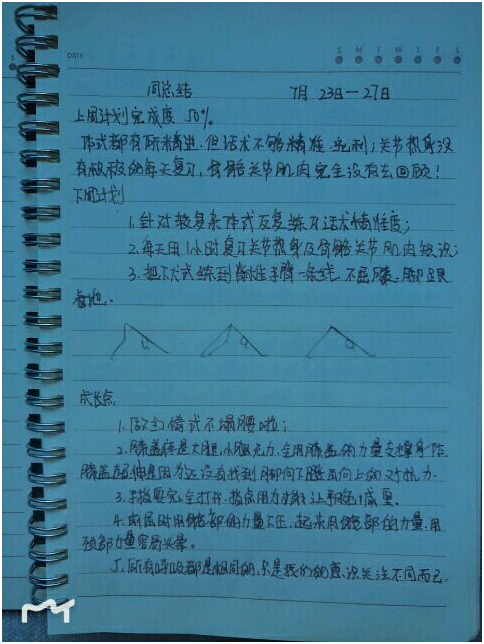 DATE
S M T W T F S
周总结 7月23日—27日
上周计划完成度 50%
体式都有所精进,但话术不够精准,流利;关节热身没
有积极的每天复习,骨骼关节肌肉完全没有去回顾!
下周计划
1.针对较复杂体式反复练习话术精准度;
2.每天用1小时复习关节热身及骨骼关节肌肉知识;
3.把下犬式练到脊柱手臂一条线,不屈膝,脚足跟
着地。
成长点
1.做幻椅式不塌腰啦;
2.膝盖疼是大腿,小腿无力,全用膝盖的力量支撑身体,
膝盖超伸是因为还没有找到脚向下腿面向上的对抗力.
3.手指要完全打开,指点用力
4.前屈时用髋部的力量下压,起来用髋部的力量,用
颈部力量容易头晕。
5.所有呼吸都是相同的,只是我们的意识关注不同而已